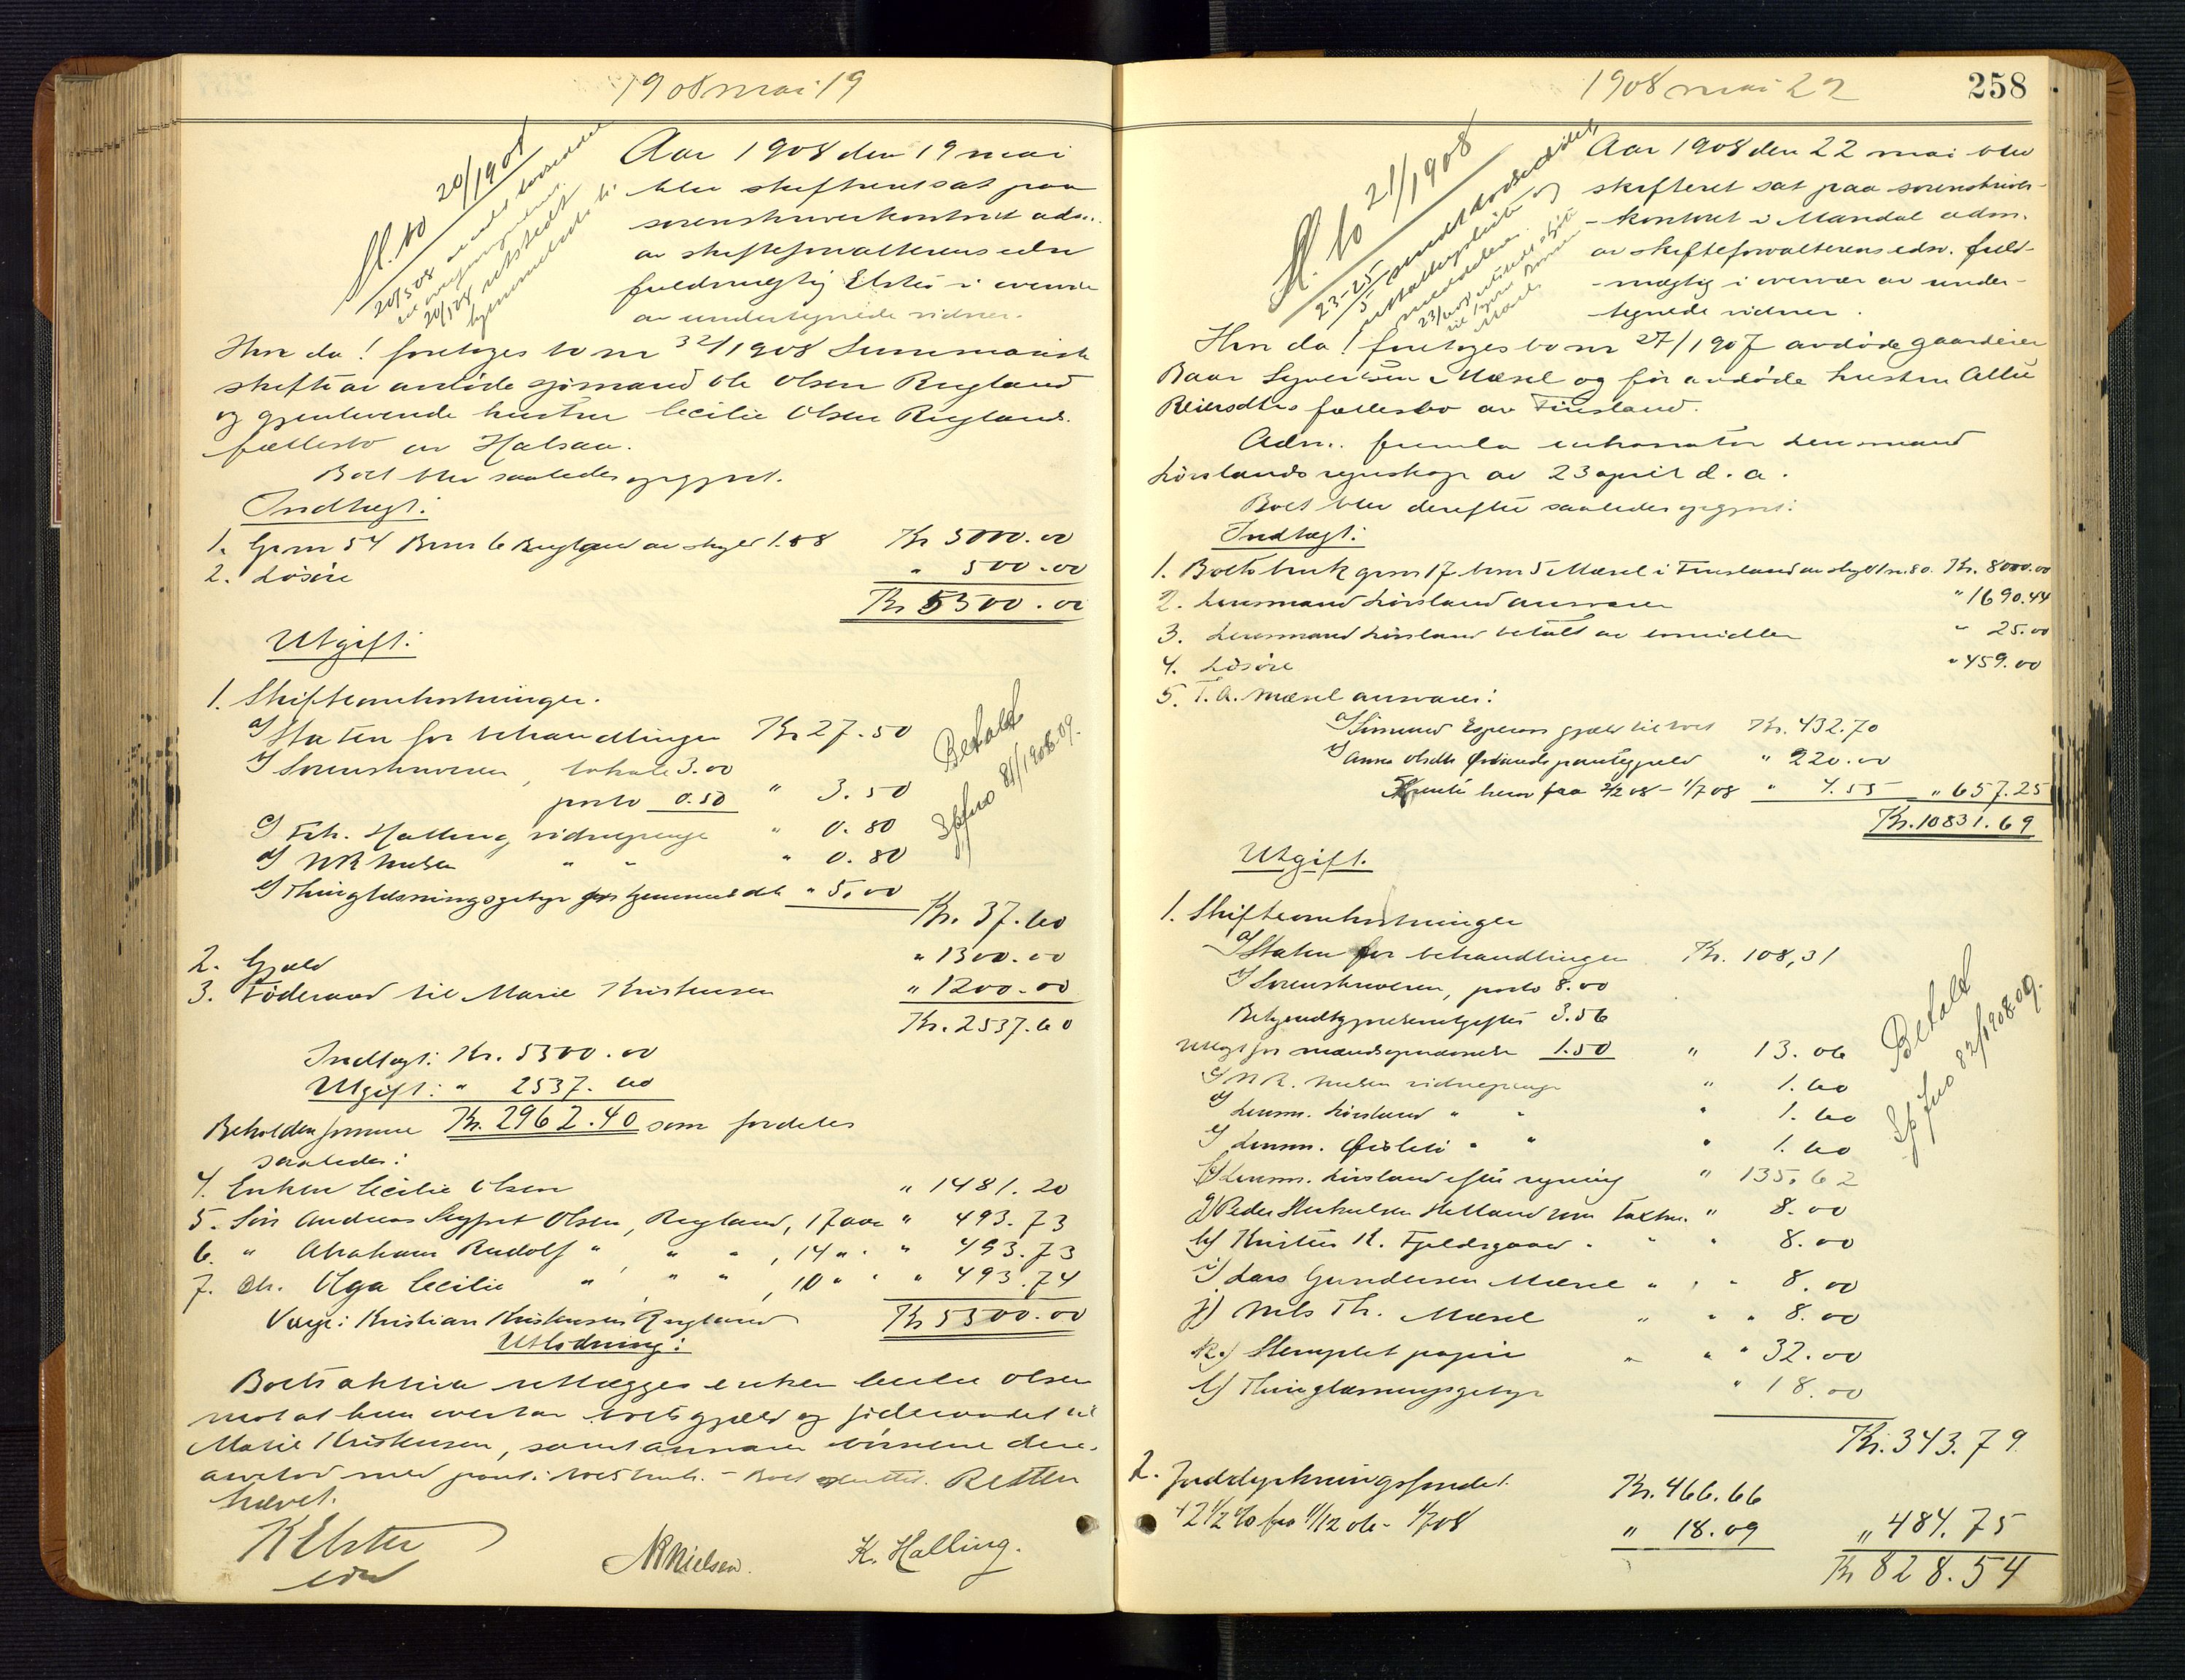 1908 mai 19
Sl. bo 20/1908
Aar 1908 den 19 mai
blev skifteret sat paa
sorenskriverkontoret adm.
av skifteforvalterens edsv.
fuldmægtig Elster i overvær
av undertegnede vidner.
Hvor da! foretoges bo nr 32/1908 Summarisk
skifte av avdøde sjømand Ole Olsen Rugland
og gjenlevende hustru Cecilie Olsen Ruglands
fællesbo av Halsaa.
Boet blev saaledes opgjort.
Indtægt:
1. Grnr 54 Brnr 6 Rugland av skyld 1.88 Kr 5000.00
2. Løsøre " 500.00
Kr 5500.00
Utgift:
1. Skifteomkostninger.
a) Staten for behandlingen Kr 27.50
b) Sorenskriveren, lokale 3.00
porto 0.50 " 3.50
c) Frk. Halling vidnepenge " 0.80
d) NR Nielsen " " " 0.80
e) Thinglæsningsgebyr for hjemmelsdok. " 5.00
Kr. 37.60
Betalt
Spfno 81/1908-09.
2. Gjæld " 1300.00
3. Føderaad til Marie Kristensen " 1200.00
Kr. 2537.60
Indtægt: Kr. 5500.00
Utgift: " 2537.60
Beholden formue Kr. 2962.40 som fordeles
saaledes:
4. Enken Cecilie Olsen " 1481.20
5. Søn Andreas Sigfret Olsen, Rugland, 17 aar " 493.73
6. " Abraham Rudolf " , " " , 14 " " 493.73
7. Dtr. Olga Cecilie " , " " , 10 " " 493.74
Værge: Kristian Kristensen Rugland Kr 5500.00
Utlodning:
Boets aktiva utlægges enken Cecilie Olsen
mot at hun overtar boets gjæld og føderaadet til
Marie Kristensen, samt ansvarer børnene deres
arvelod med pant i boets bruk. - Boet sluttet. Retten
hævet.
K Elster
edsv
NR Nielsen.
K. Halling.
1908 mai 22
258
Sl. bo 21/1908
Aar 1908 den 22 mai blev
skifteret sat paa sorenskriver-
-kontoret i Mandal adm.
av skifteforvalterens edsv. fuld-
-mægtig i overvær av under-
tegnede vidner.
Hvor da! foretoges bo nr 27/1907 avdøde gaardeier
Baar Syvertsen Mæsel og før avdøde hustru Allie
Reiersdtrs fællesbo av Finsland.
Adm. fremla inkassator lensmand
Lørslands regnskap av 23 april d. a.
Boet blev derefter saaledes opgjort:
Indtægt:
1. Boets bruk grnr 17 brnr 5 Mæsel i Finsland av skyld 1.80. Kr. 8000.00
2. Lensmand Lørsland ansvarer " 1690.44
3. Lensmand Lørsland betalt av bomidler " 25.00
4. Løsøre " 459.00
5. T. A. Mæsel ansvarer:
a) Simund Espesens gjæld til boet Kr. 432.70
b) Anne Olsdtr pantegjæld " 220.00
Rente herav fra 2/2 08 - 1/7 08 " 4.55 " 657.25
Kr. 10831.69
Utgift.
1. Skifteomkostninger
a) Staten for behandlingen Kr. 108,31
b) Sorenskriveren, porto 8.00
3.56
Utlagt for 1.50 " 13.06
c) N R. Nielsen vidnepenge " 1.60
d) Lensm. Lørsland " " " 1.60
e) Lensm. " " " 1.60
f) Lensm. Lørsland efter regning " 135.62
g) Peder Herkulsen Helland som taxtm. " 8.00
h) Kristen K. Fjeldsgaard " " " 8.00
i) Lars Gundersen Mæsel " " " 8.00
j) Nils Th. Mæsel " " " 8.00
k.) Stemplet papir " " " 32.00
l) Thinglæsningsgebyr " 18.00
Kr. 343.79.
Betalt
Spfno 82/1908-09.
2. Jorddyrkningsfondet Kr. 466.66
+ 2 1/2 % fra 11/12 06 - 1/7 08 " 18.09 " 484.75
Kr 828.54